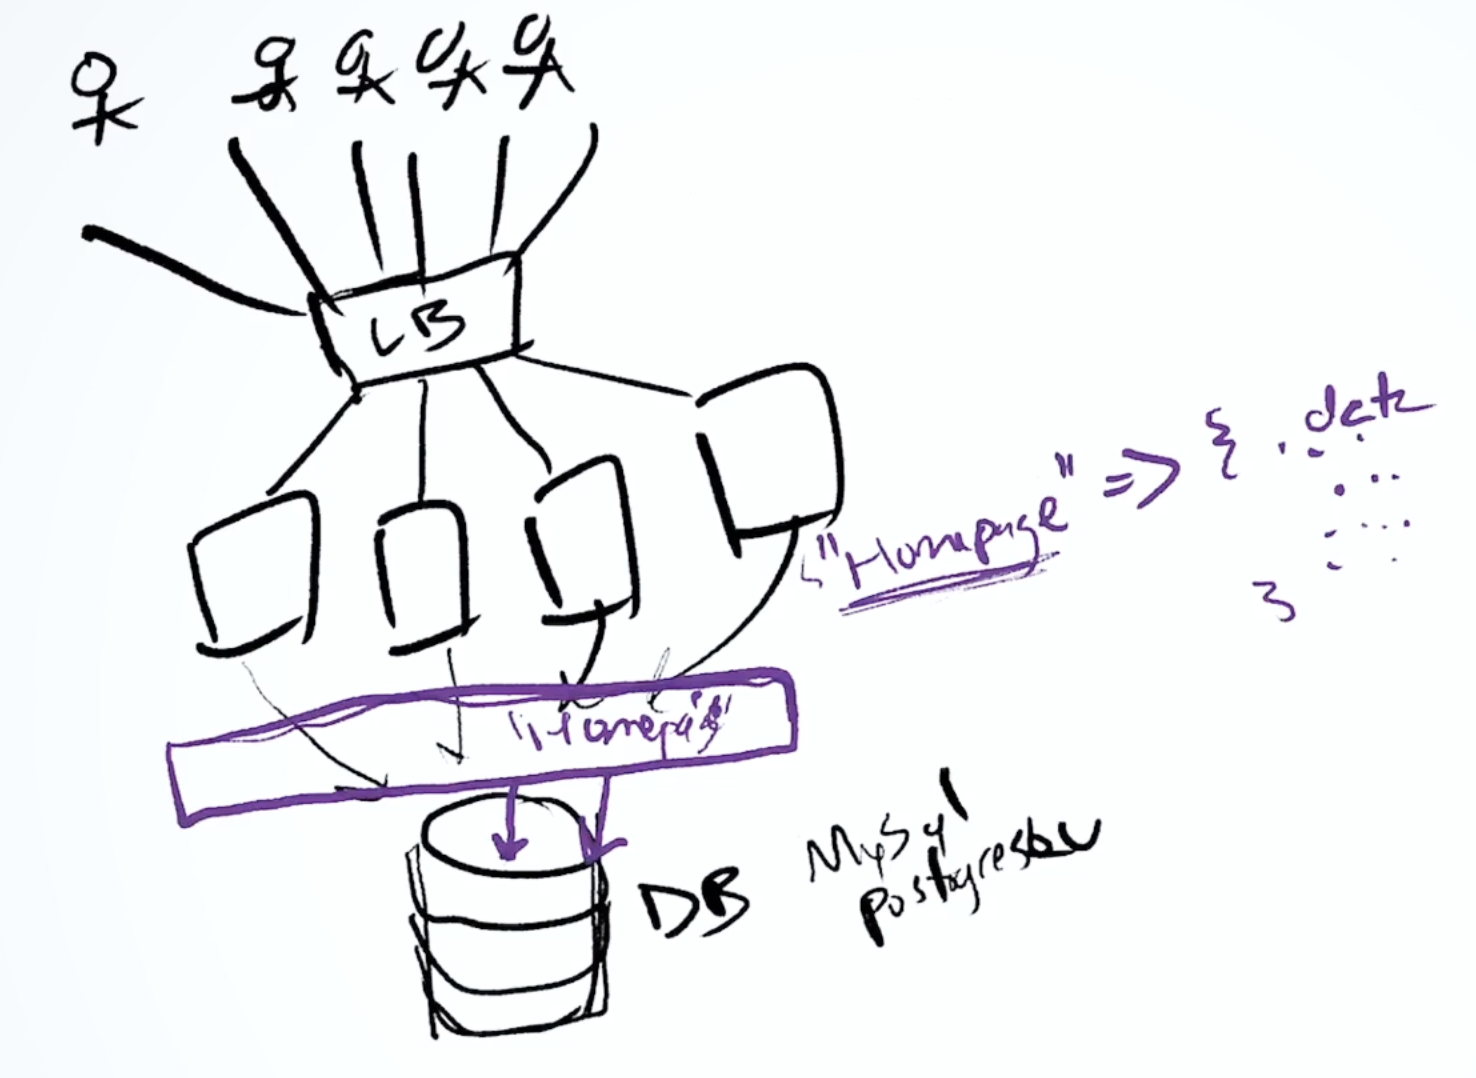 LB
"Homepage" => { . data
}
"Homepag"
DB
MySql
postgresSQL